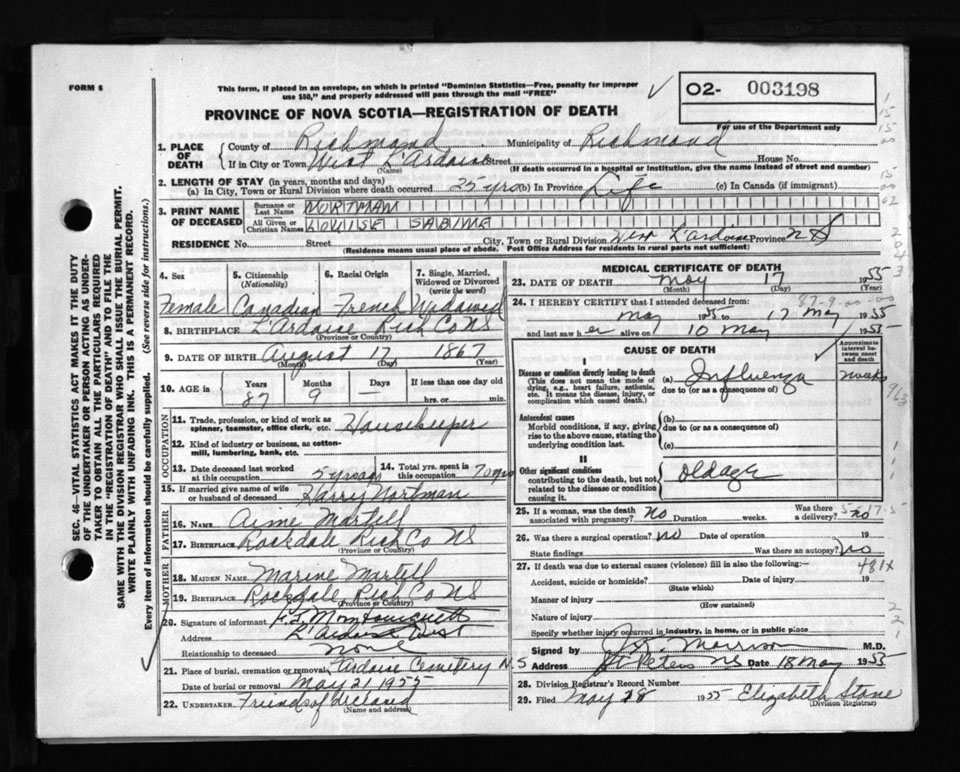 FORM 6
This form, if placed in an envelope, on which is printed "Dominion Statistics—Free, penalty for improper
use $50," and properly addressed will pass through the mail "FREE"
O2- 003198
For use of the Department only
PROVINCE OF NOVA SCOTIA—REGISTRATION OF DEATH
1. PLACE OF DEATH
County of Richmond Municipality of Richmond
If in City or Town West L'Ardoise Street House No.
(Name) (If death occurred in a hospital or institution, give the name instead of street and number)
2. LENGTH OF STAY (in years, months and days)
(a) In City, Town or Rural Division where death occurred 25 yrs (b) In Province Life (c) In Canada (if immigrant)
3. PRINT NAME OF DECEASED
Surname or Last Name MORTMAN
All Given or Christian Names LOUISE SABINE
RESIDENCE No. Street City, Town or Rural Division West L'ardoise Province NS
(Residence means usual place of abode. Post Office Address for residents in rural parts not sufficient)
4. Sex
Female
5. Citizenship (Nationality)
Canadian
6. Racial Origin
French
7. Single, Married, Widowed or Divorced (write the word)
Widowed
8. BIRTHPLACE L'Ardoise Rich Co NS
(Province or Country)
9. DATE OF BIRTH August 17 1867
(Month) (Day) (Year)
10. AGE in Years Months Days If less than one day old
87 9 hrs. or min.
OCCUPATION
11. Trade, profession, or kind of work as spinner, teamster, office clerk, etc. Housekeeper
12. Kind of industry or business, as cotton-mill, lumbering, bank, etc.
13. Date deceased last worked at this occupation 5 years
14. Total yrs. spent in this occupation 70 yrs
15. If married give name of wife or husband of deceased Harry Mortman
FATHER
16. NAME Aime Martell
17. BIRTHPLACE Rockdale Rich Co NS
(Province or Country)
MOTHER
18. MAIDEN NAME Marine Martell
19. BIRTHPLACE Rockdale Rich Co NS
(Province or Country)
20. Signature of informant
Address L'Ardoise West
Relationship to deceased none
21. Place of burial, cremation or removal Lardoise Cemetery N.S
Date of burial or removal May 21 1955
22. UNDERTAKER Friends of deceased
(Name and address)
MEDICAL CERTIFICATE OF DEATH
23. DATE OF DEATH May 17 1955
(Month) (Day) (Year)
87-9-00-00
24. I HEREBY CERTIFY that I attended deceased from:
May 1955 to 17 May 1955
and last saw her alive on 10 May 1955
CAUSE OF DEATH
Approximate interval between onset and death
I
Disease or condition directly leading to death
(This does not mean the mode of dying, e.g., heart failure, asthenia, etc. It means the disease, injury, or complication which caused death.)
(a) Influenza 2 weeks
due to (or as a consequence of)
Antecedent causes
Morbid conditions, if any, giving rise to the above cause, stating the underlying condition last.
(b)
due to (or as a consequence of)
(c)
II
Other significant conditions contributing to the death, but not related to the disease or condition causing it.
Old age
25. If a woman, was the death associated with pregnancy? No Duration weeks. Was there a delivery? no
26. Was there a surgical operation? no Date of operation 19
State findings Was there an autopsy? no
27. If death was due to external causes (violence) fill in also the following: 481x
Accident, suicide or homicide? Date of injury 19
(State which)
Manner of injury
(How sustained)
Nature of injury
Specify whether injury occurred in industry, in home, or in public place
Signed by Morrison M.D.
Address St Peters NS Date 18 May 1955
28. Division Registrar's Record Number
29. Filed May 28 1955 Elizabeth Stone
(Division Registrar)
SEC. 46—VITAL STATISTICS ACT MAKES IT THE DUTY
OF THE UNDERTAKER OR PERSON ACTING AS UNDER-
TAKER TO OBTAIN ALL THE PARTICULARS REQUIRED
IN THE "REGISTRATION OF DEATH" AND TO FILE THE
SAME WITH THE DIVISION REGISTRAR WHO SHALL ISSUE THE BURIAL PERMIT.
WRITE PLAINLY WITH UNFADING INK. THIS IS A PERMANENT RECORD.
Every item of information should be carefully supplied. (See reverse side for instructions.)